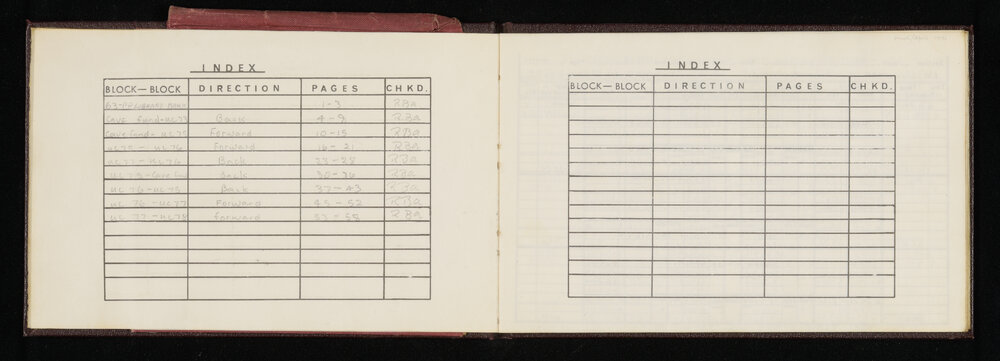 INDEX
BLOCK—BLOCK DIRECTION PAGES CHKD.
1-3 RBa
Cave Fund-UC73 Back 4-9 RBa
Cave Fund- UC75 Forward 10-15 RBa
UC75 - UC76 Forward 16-21 RBa
UC77-UC76 Back 23-28 RBa
UC75-Cave Fund Back 30-36 RBa
UC76-UC75 Back 37-43 RBa
UC76-UC77 Forward 45-52 RBa
UC77-UC78 Forward 53-58 RBa
INDEX
BLOCK—BLOCK DIRECTION PAGES CHKD.